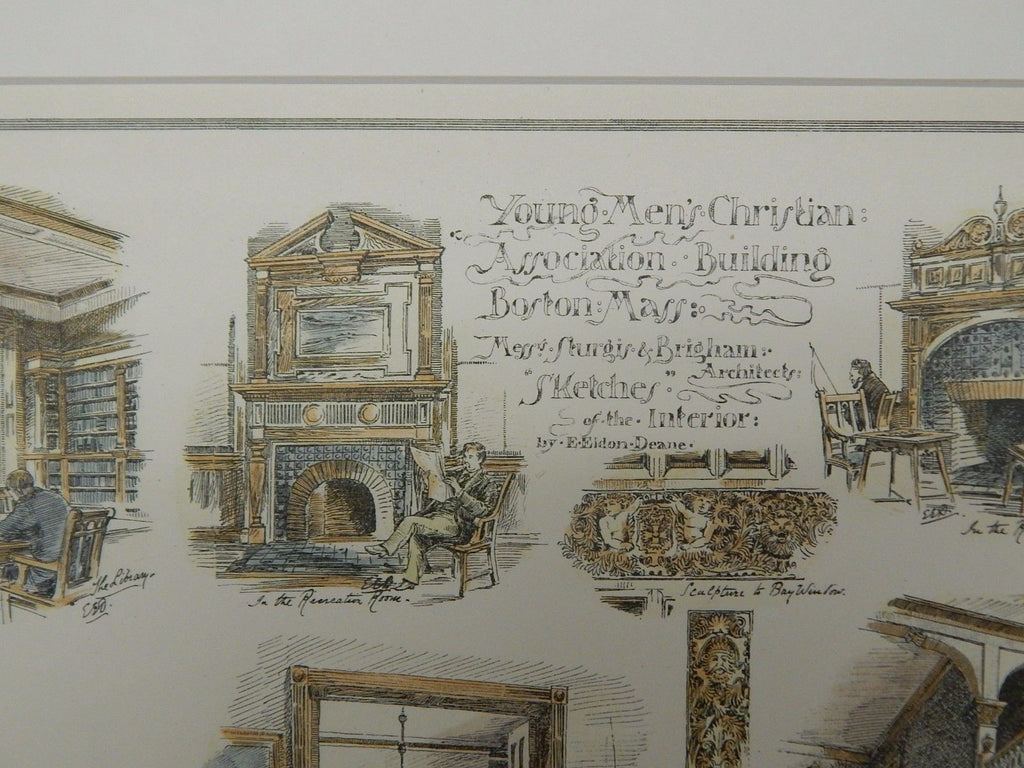 Young Men's Christian:
Association Building
Boston: Mass:
Messrs Sturgis & Brigham:
Architects:
"Sketches"
of the Interior:
by E. Eldon Deane.
The Library.
EED.
In the Recreation Room.
Sculpture to Bay Window.
In the